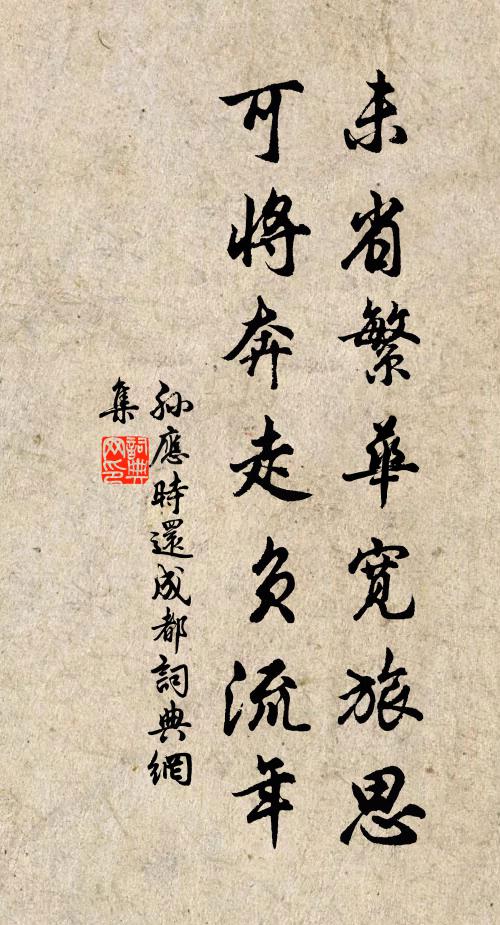 未省繁華寬旅思
可將奔走負流年
孫應時還成都詞典網
集
詞典
网印